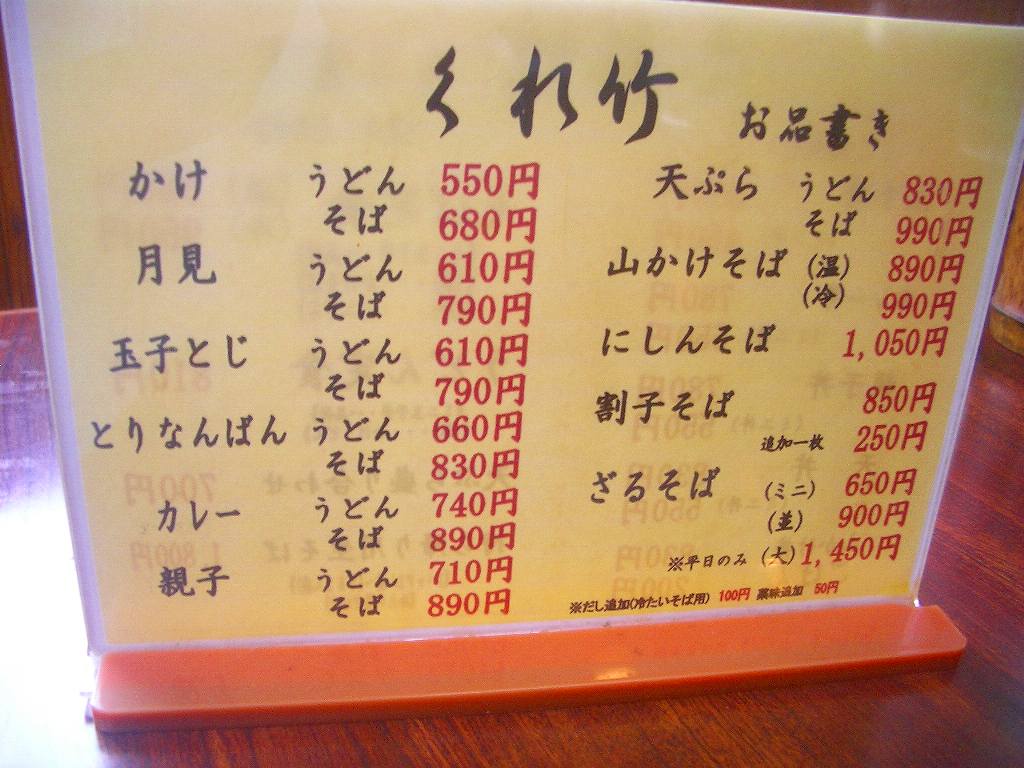 くれ竹
お品書き
かけ うどん 550円
そば 680円
月見 うどん 610円
そば 790円
玉子とじ うどん 610円
そば 790円
とりなんばん うどん 660円
そば 830円
カレー うどん 740円
そば 890円
親子 うどん 710円
そば 890円
天ぷら うどん 830円
そば 990円
山かけそば (温) 890円
(冷) 990円
にしんそば 1,050円
割子そば 850円
追加一枚 250円
ざるそば (ミニ) 650円
(並) 900円
※平日のみ (大) 1,450円
※だし追加(冷たいそば用) 100円 薬味追加 50円